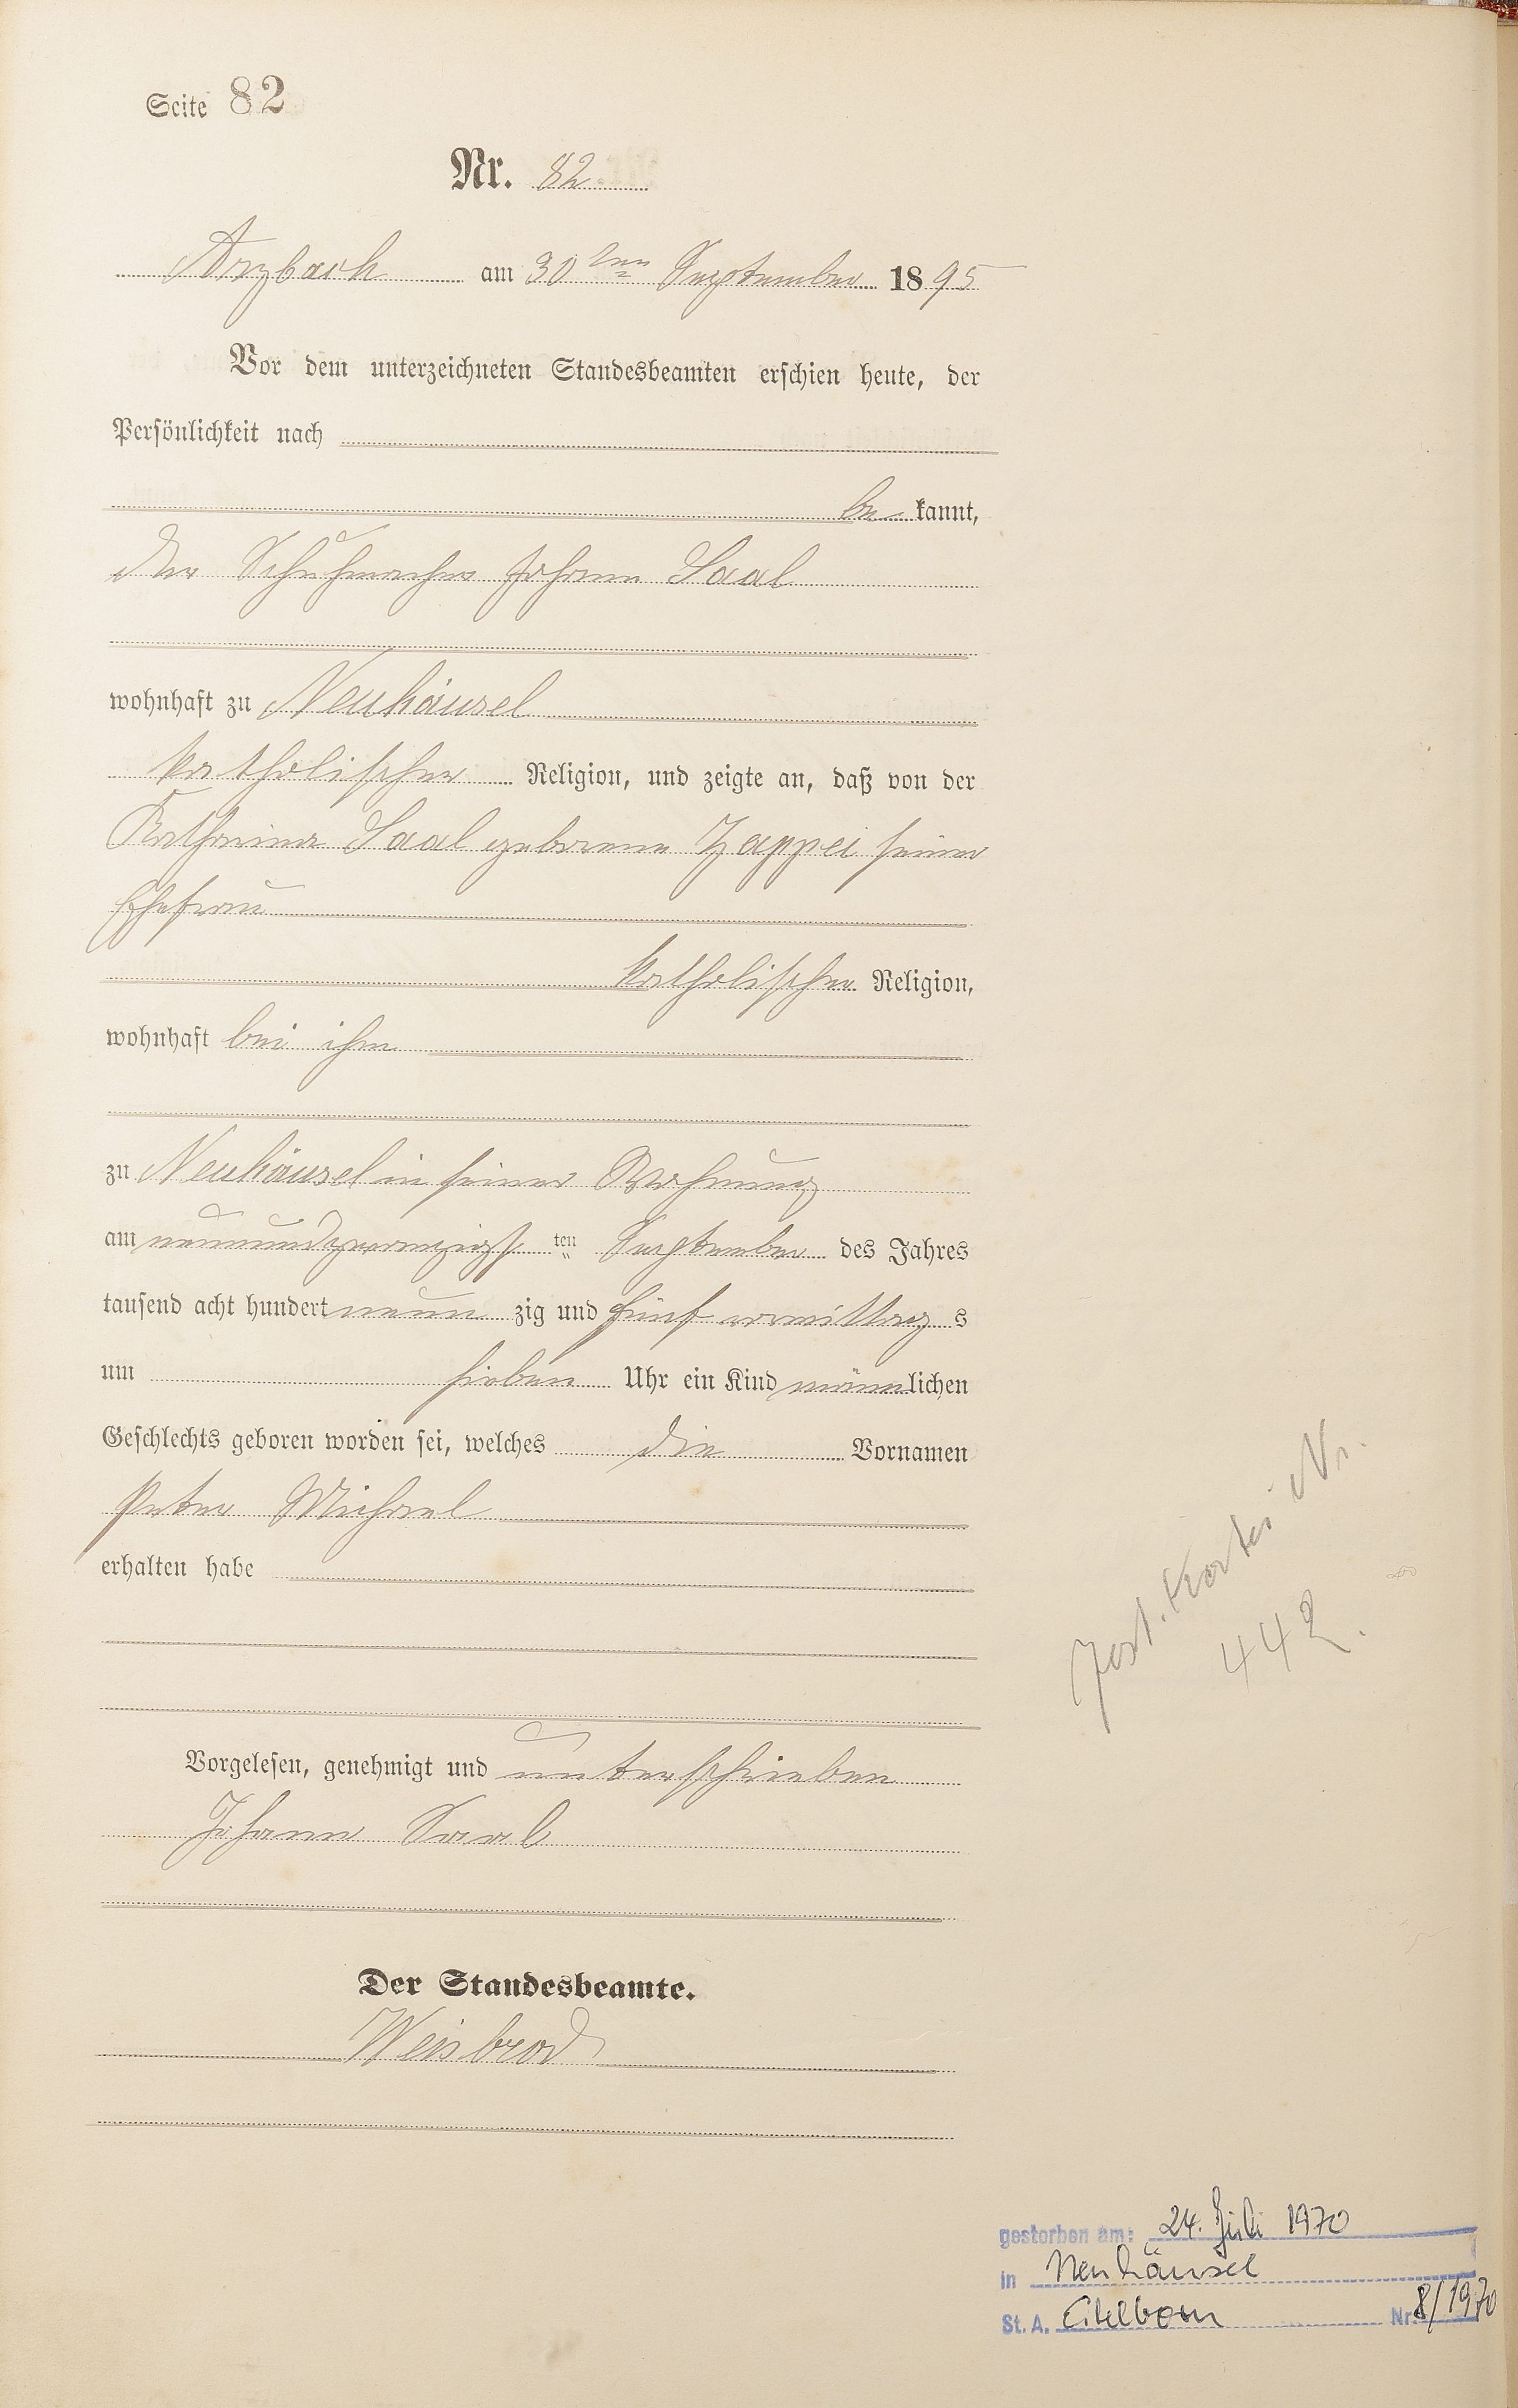 Seite 82
Nr. 82
Arzbach am 30ten September 1895
Vor dem unterzeichneten Standesbeamten erschien heute, der
Persönlichkeit nach
be kannt,
der Schuhmacher Johann Saal
wohnhaft zu Neuhäusel
katholischer Religion, und zeigte an, daß von der
Katharina Saal geborene Zappei seiner
Ehefrau
katholischer Religion,
wohnhaft bei ihm
zu Neuhäusel in seiner Wohnung
am neunundzwanzigsten September des Jahres
tausend acht hundert neun zig und fünf vormittags
um sieben Uhr ein Kind männlichen
Geschlechts geboren worden sei, welches die Vornamen
Peter Michael
erhalten habe
Vorgelesen, genehmigt und unterschrieben
Johann Saal
Der Standesbeamte.
Weisbrod
Kartei Nr.
442.
gestorben am: 24. Juli 1970
in Neuhäusel
St. A. Eitelborn Nr. 8/1970